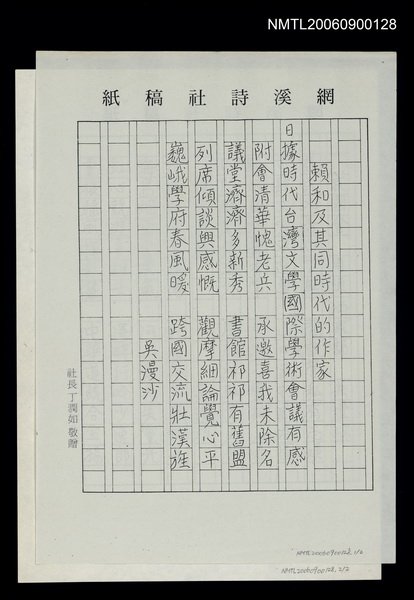 NMTL20060900128
網溪詩社稿紙
賴和及其同時代的作家
日據時代台灣文學國際學術會議有感
附會清華愧老兵 承邀喜我未除名
議堂濟濟多新秀 書館祁祁有舊盟
列席傾談興感慨 觀摩細論覺心平
巍峨學府春風暖 跨國交流壯漢旌
吳漫沙
社長丁潤如敬贈
NMTL20060900128, 1/2
NMTL20060900128, 2/2